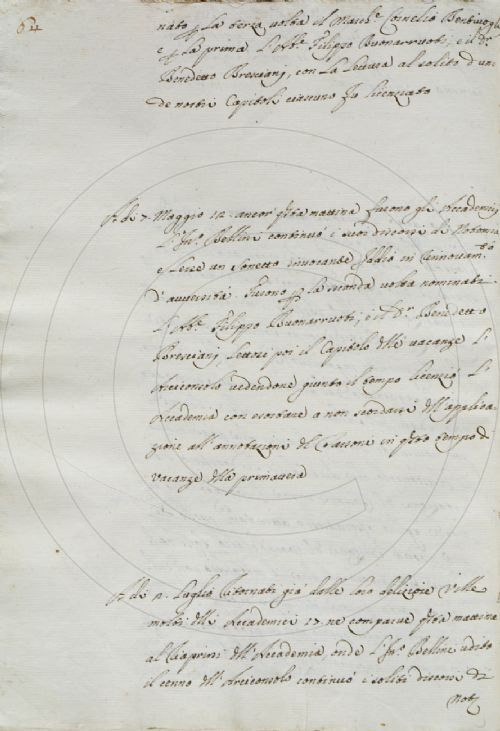 64
nato p la terza volta il March.e Cornelio Bentivogli
e p la prima l'Ab.e Filippo Buonarruoti, e il D.r
Benedetto Bresciani, con la lettura al solito d'un
de nostri Capitoli ciascuno fu licenziato
A dì 7. Maggio 12. ancor q.sta mattina furono gli Accademici,
l'In.o Bellini continuò i suoi discorsi di Notomia
e lesse un sonetto invocante Iddio in
d'avversità. Furono p la seconda volta nominati
l'Ab.e Filippo Buonarruoti, e il D.r Benedetto
Bresciani, lettosi poi il Capitolo delle vacanze l'
Arciconsolo vedendone giunto il tempo licenziò l'
Accademia con esortare a non scordarsi dell'applica-
zione all'annotazioni del in q.sto tempo di
vacanze della primavera
A dì Luglio Ritornati già dalle loro deliziose ville
molti degli Accademici 17. ne comparve q.sta mattina
al riaprirsi dell'Accademia, onde l'In.o Bellini udito
il cenno dell'Arciconsolo continuò i soliti discorsi di
Noto